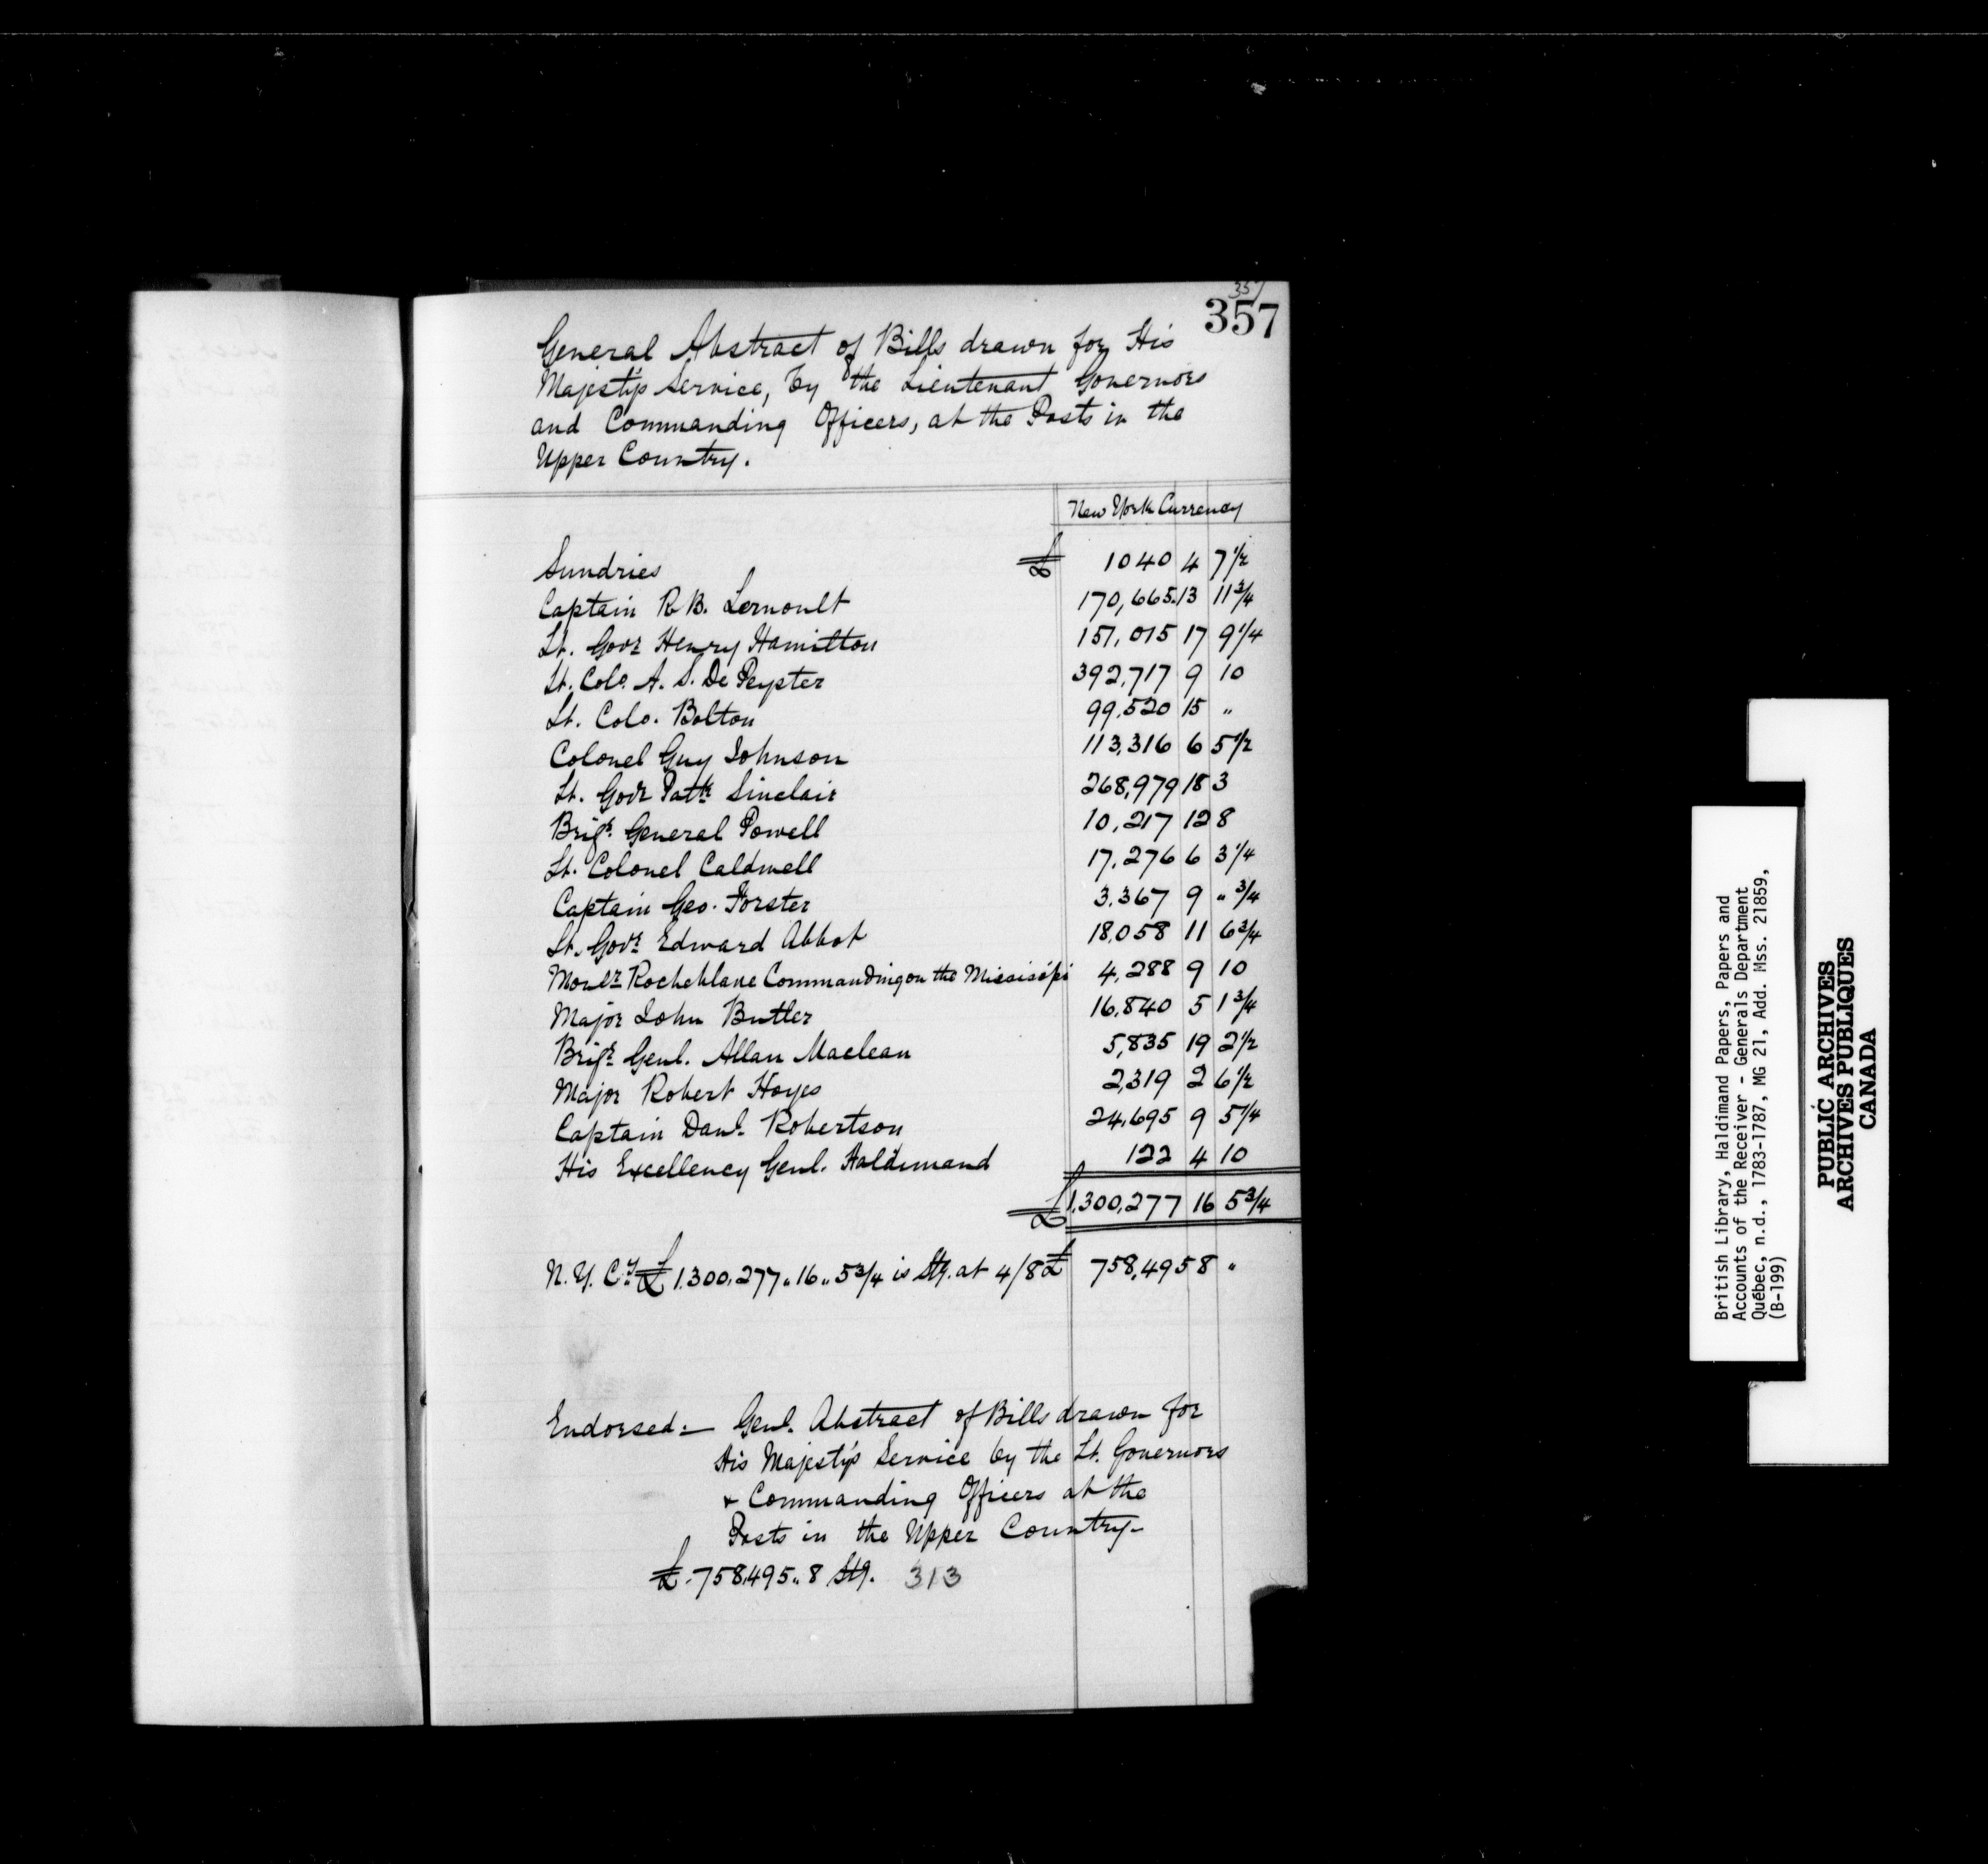 357
357
General Abstract of Bills drawn for His
Majesty's Service, by the Lieutenant Governors
and Commanding Officers, at the Posts in the
Upper Country.
New York Currency
Sundries £ 1040 4 7 1/2
Captain R B. Lernoult 170,665. 13 11 3/4
Lt. Govr Henry Hamilton 151,015 17 9 1/4
Lt. Colo. A. S. De Peyster 392,717 9 10
Lt. Colo. Bolton 99,520 15 "
Colonel Guy Johnson 113,316 6 5 1/2
Lt. Govr Patk Sinclair 268,979 18 3
Brigr. General Powell 10,217 12 8
Lt. Colonel Caldwell 17,276 6 3 1/4
Captain Geo. Forster 3,367 9 " 3/4
Lt. Govr Edward Abbot 18,058 11 6 3/4
Monsr Rocheblave Commanding on the Missisipi 4,288 9 10
Major John Butler 16,840 5 1 3/4
Brigr Genl. Allan Maclean 5,835 19 2 1/2
Major Robert Hoyes 2,319 2 6 1/2
Captain Danl. Robertson 24,695 9 5 1/4
His Excellency Genl. Haldimand 122 4 10
£ 1,300,277 16 5 3/4
N. Y. Cy £ 1.300,277 „ 16 „ 5 3/4 is Stg. at 4/8 £ 758,495 8 "
Endorsed:— Genl. Abstract of Bills drawn for
His Majesty's Service by the Lt. Governors
& Commanding Officers at the
Posts in the Upper Country—
£.758,495 „ 8 Stg. 313
British Library, Haldimand Papers, Papers and
Accounts of the Receiver - Generals Department
Québec, n.d., 1783-1787, MG 21, Add. Mss. 21859,
(B-199)
PUBLIC ARCHIVES
ARCHIVES PUBLIQUES
CANADA